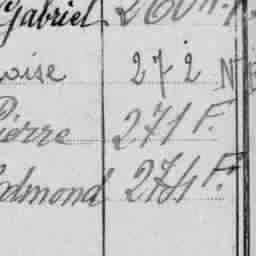 Gabriel
oise 272 N
Pierre 271 F.
Edmond 274 F.